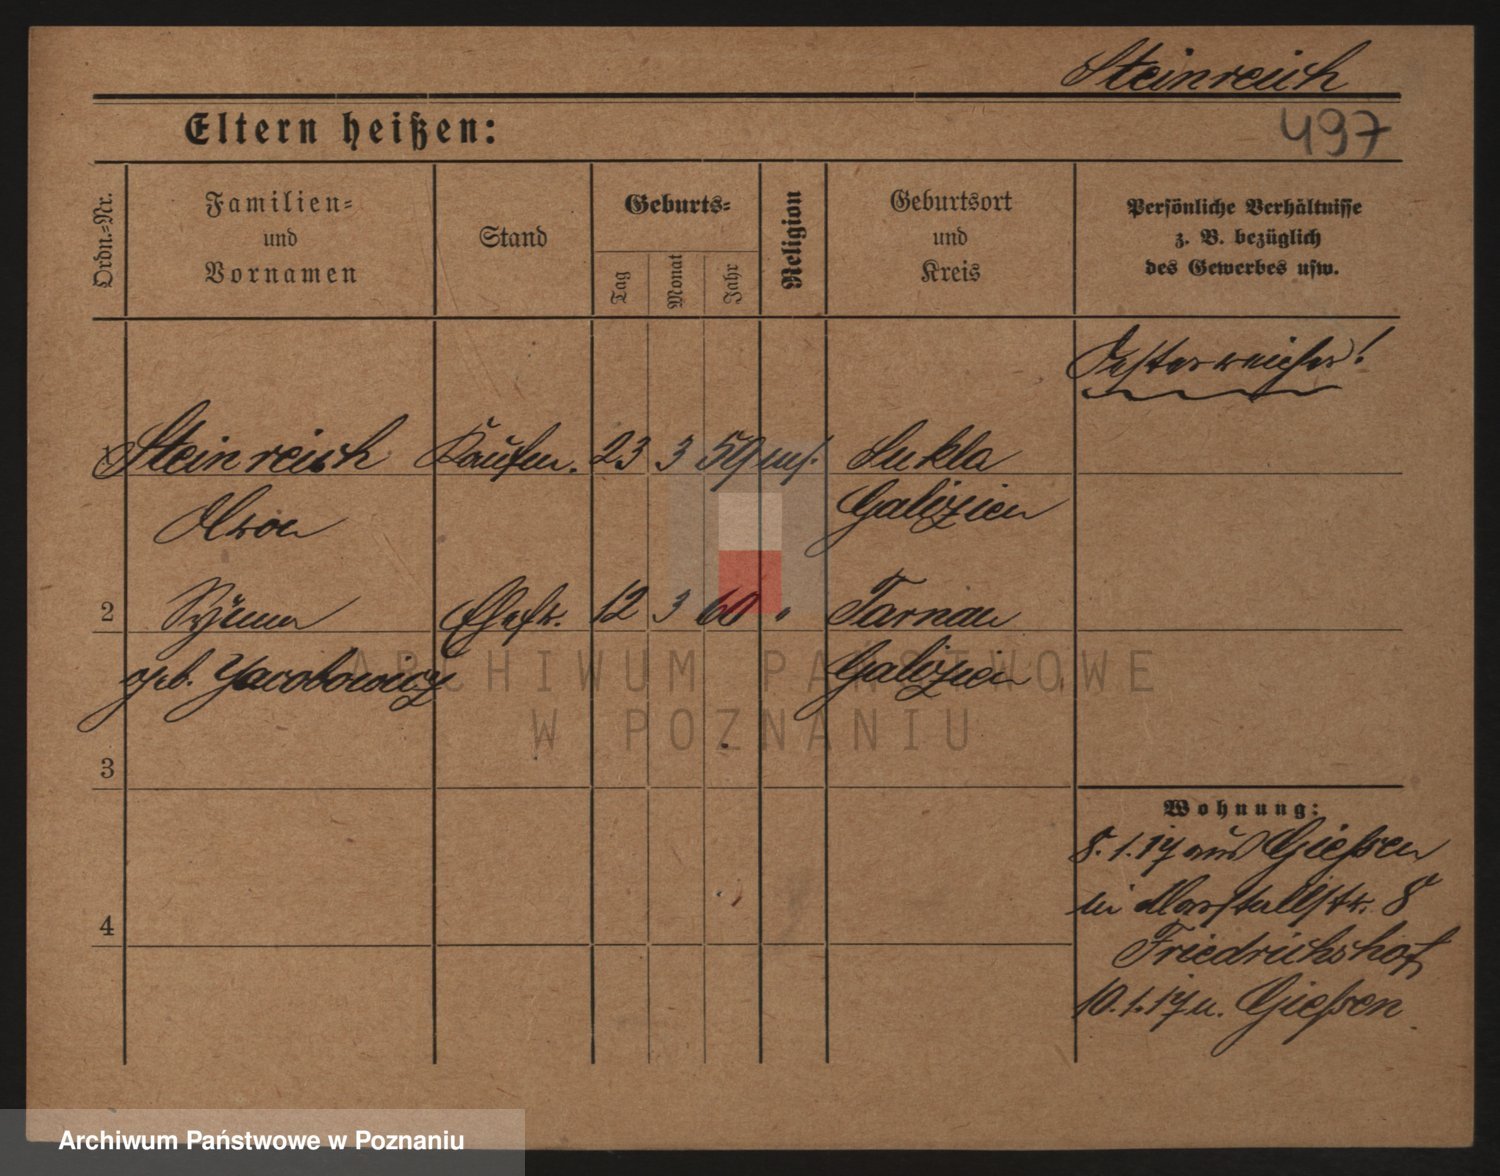 Steinreich
Eltern heißen:
497
Ordn.-Nr.
Familien-
und
Vornamen
Stand
Geburts-
Tag
Monat
Jahr
Religion
Geburtsort
und
Kreis
Persönliche Verhältnisse
z. B. bezüglich
des Gewerbes usw.
Oesterreicher!
1 Steinreich Kaufm. 23 3 59 mos. Dukla
Galizien
2 Ehefr. 12 3 60 " Tarnau
geb. Jacobowicz Galizien
3
4
Wohnung:
8.1.17 aus Giessen
in Marstallstr. 8
Friedrichshof
10.1.17 n. Giessen
ARCHIWUM PAŃSTWOWE
W POZNANIU
Archiwum Państwowe w Poznaniu